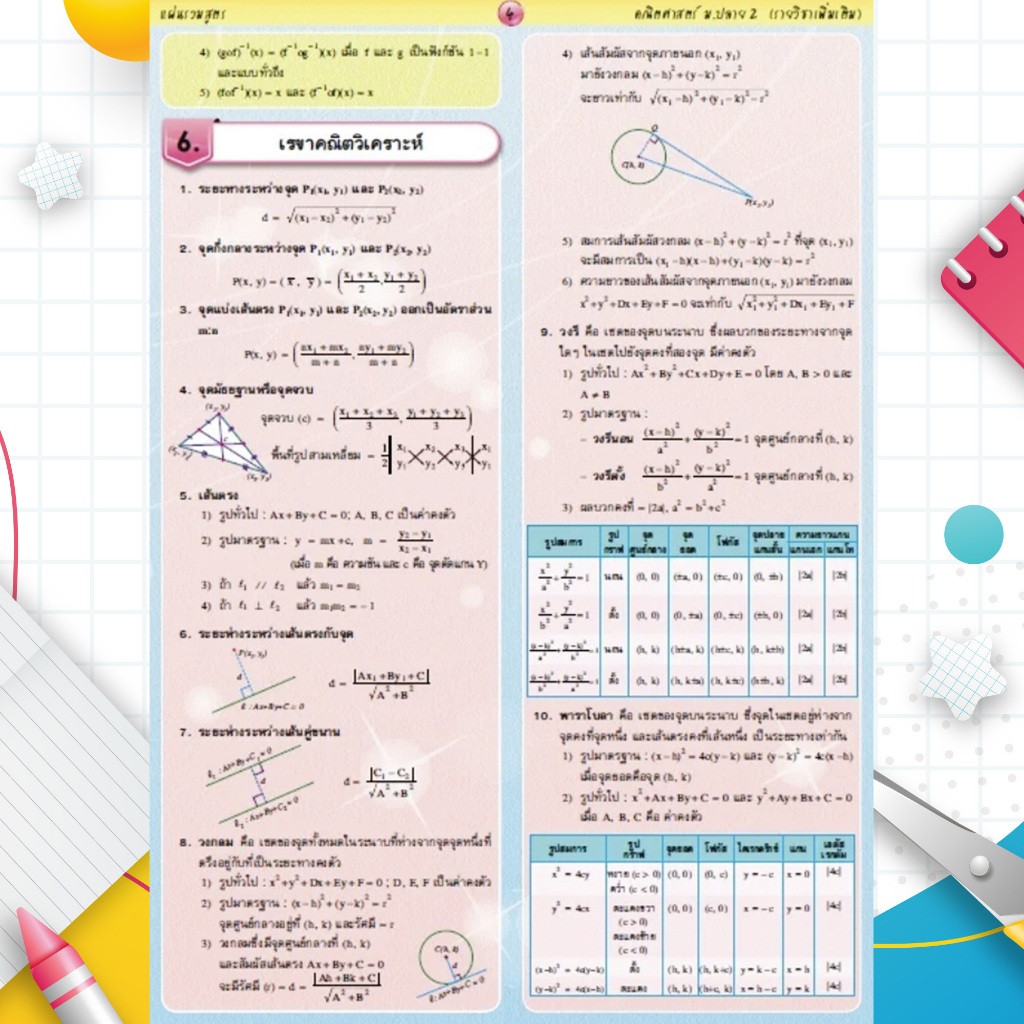 แผ่นรวมสูตร
4
คณิตศาสตร์ ม.ปลาย 2 (รายวิชาเพิ่มเติม)
4) (gof)⁻¹(x) = (f⁻¹og⁻¹)(x) เมื่อ f และ g เป็นฟังก์ชัน 1-1
และแบบทั่วถึง
5) (fof⁻¹)(x) = x และ (f⁻¹of)(x) = x
6. เรขาคณิตวิเคราะห์
1. ระยะทางระหว่างจุด P₁(x₁, y₁) และ P₂(x₂, y₂)
d = √((x₁−x₂)²+(y₁−y₂)²)
2. จุดกึ่งกลางระหว่างจุด P₁(x₁, y₁) และ P₂(x₂, y₂)
P(x, y) = (x̅, y̅) = ((x₁+x₂)/2, (y₁+y₂)/2)
3. จุดแบ่งเส้นตรง P₁(x₁, y₁) และ P₂(x₂, y₂) ออกเป็นอัตราส่วน
m:n
P(x, y) = ((nx₁+mx₂)/(m+n), (ny₁+my₂)/(m+n))
4. จุดมัธยฐานหรือจุดจวบ
จุดจวบ (c) = ((x₁+x₂+x₃)/3, (y₁+y₂+y₃)/3)
พื้นที่รูปสามเหลี่ยม = 1/2 | x₁ x₂ x₃ x₁
y₁ y₂ y₃ y₁
5. เส้นตรง
1) รูปทั่วไป : Ax+By+C = 0; A, B, C เป็นค่าคงตัว
2) รูปมาตรฐาน : y = mx+c, m = (y₂−y₁)/(x₂−x₁)
(เมื่อ m คือ ความชัน และ c คือ จุดตัดแกน Y)
3) ถ้า ℓ₁ // ℓ₂ แล้ว m₁ = m₂
4) ถ้า ℓ₁ ⊥ ℓ₂ แล้ว m₁m₂ = −1
6. ระยะห่างระหว่างเส้นตรงกับจุด
P(x₁, y₁)
d
ℓ : Ax+By+C = 0
d = |Ax₁+By₁+C|/√(A²+B²)
7. ระยะห่างระหว่างเส้นคู่ขนาน
ℓ₁ : Ax+By+C₁ = 0
d
ℓ₂ : Ax+By+C₂ = 0
d = |C₁−C₂|/√(A²+B²)
8. วงกลม คือ เซตของจุดทั้งหมดในระนาบที่ห่างจากจุดจุดหนึ่งที่
ตรึงอยู่กับที่เป็นระยะทางคงตัว
1) รูปทั่วไป : x²+y²+Dx+Ey+F = 0 ; D, E, F เป็นค่าคงตัว
2) รูปมาตรฐาน : (x−h)²+(y−k)² = r²
จุดศูนย์กลางอยู่ที่ (h, k) และรัศมี = r
3) วงกลมซึ่งมีจุดศูนย์กลางที่ (h, k)
และสัมผัสเส้นตรง Ax+By+C = 0
จะมีรัศมี (r) = d = |Ah+Bk+C|/√(A²+B²)
C(h, k)
d
ℓ : Ax+By+C = 0
4) เส้นสัมผัสจากจุดภายนอก (x₁, y₁)
มายังวงกลม (x−h)²+(y−k)² = r²
จะยาวเท่ากับ √((x₁−h)²+(y₁−k)²−r²)
Q
C(h, k)
P(x₁, y₁)
5) สมการเส้นสัมผัสวงกลม (x−h)²+(y−k)² = r² ที่จุด (x₁, y₁)
จะมีสมการเป็น (x₁−h)(x−h)+(y₁−k)(y−k) = r²
6) ความยาวของเส้นสัมผัสจากจุดภายนอก (x₁, y₁) มายังวงกลม
x²+y²+Dx+Ey+F = 0 จะเท่ากับ √(x₁²+y₁²+Dx₁+Ey₁+F)
9. วงรี คือ เซตของจุดบนระนาบ ซึ่งผลบวกของระยะทางจากจุด
ใดๆ ในเซตไปยังจุดคงที่สองจุด มีค่าคงตัว
1) รูปทั่วไป : Ax²+By²+Cx+Dy+E = 0 โดย A, B > 0 และ
A ≠ B
2) รูปมาตรฐาน :
– วงรีนอน (x−h)²/a²+(y−k)²/b² = 1 จุดศูนย์กลางที่ (h, k)
– วงรีตั้ง (x−h)²/b²+(y−k)²/a² = 1 จุดศูนย์กลางที่ (h, k)
3) ผลบวกคงที่ = |2a|, a² = b²+c²
รูปสมการ รูปกราฟ จุดศูนย์กลาง จุดยอด โฟกัส จุดปลายแกนสั้น ความยาวแกน แกนเอก แกนโท
x²/a²+y²/b² = 1 นอน (0, 0) (±a, 0) (±c, 0) (0, ±b) |2a| |2b|
x²/b²+y²/a² = 1 ตั้ง (0, 0) (0, ±a) (0, ±c) (±b, 0) |2a| |2b|
(x−h)²/a²+(y−k)²/b² = 1 นอน (h, k) (h±a, k) (h±c, k) (h, k±b) |2a| |2b|
(x−h)²/b²+(y−k)²/a² = 1 ตั้ง (h, k) (h, k±a) (h, k±c) (h±b, k) |2a| |2b|
10. พาราโบลา คือ เซตของจุดบนระนาบ ซึ่งจุดในเซตอยู่ห่างจาก
จุดคงที่จุดหนึ่ง และเส้นตรงคงที่เส้นหนึ่ง เป็นระยะทางเท่ากัน
1) รูปมาตรฐาน : (x−h)² = 4c(y−k) และ (y−k)² = 4c(x−h)
เมื่อจุดยอดคือจุด (h, k)
2) รูปทั่วไป : x²+Ax+By+C = 0 และ y²+Ay+Bx+C = 0
เมื่อ A, B, C คือ ค่าคงตัว
รูปสมการ รูปกราฟ จุดยอด โฟกัส ไดเรกตริกซ์ แกน เลตัสเรกตัม
x² = 4cy หงาย (c > 0) คว่ำ (c < 0) (0, 0) (0, c) y = −c x = 0 |4c|
y² = 4cx ตะแคงขวา (c > 0) ตะแคงซ้าย (c < 0) (0, 0) (c, 0) x = −c y = 0 |4c|
(x−h)² = 4c(y−k) ตั้ง (h, k) (h, k+c) y = k−c x = h |4c|
(y−k)² = 4c(x−h) ตะแคง (h, k) (h+c, k) x = h−c y = k |4c|